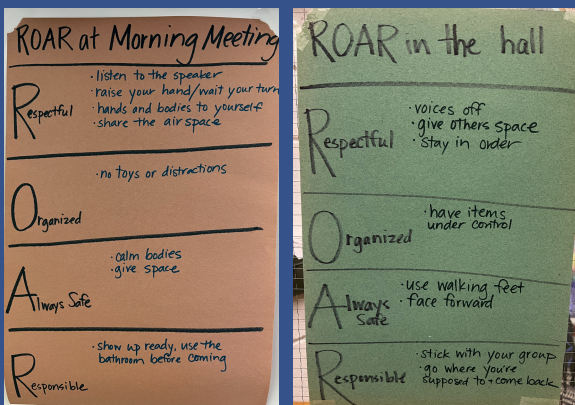 ROAR at Morning Meeting
Respectful
· listen to the speaker
· raise your hand/wait your turn
· hands and bodies to yourself
· share the air space
Organized
· no toys or distractions
Always Safe
· calm bodies
· give space
Responsible
· show up ready, use the
bathroom before coming
ROAR in the hall
Respectful
· voices off
· give others space
· stay in order
Organized
· have items
under control
Always
Safe
· use walking feet
· face forward
Responsible
· stick with your group
· go where you're
supposed to + come back